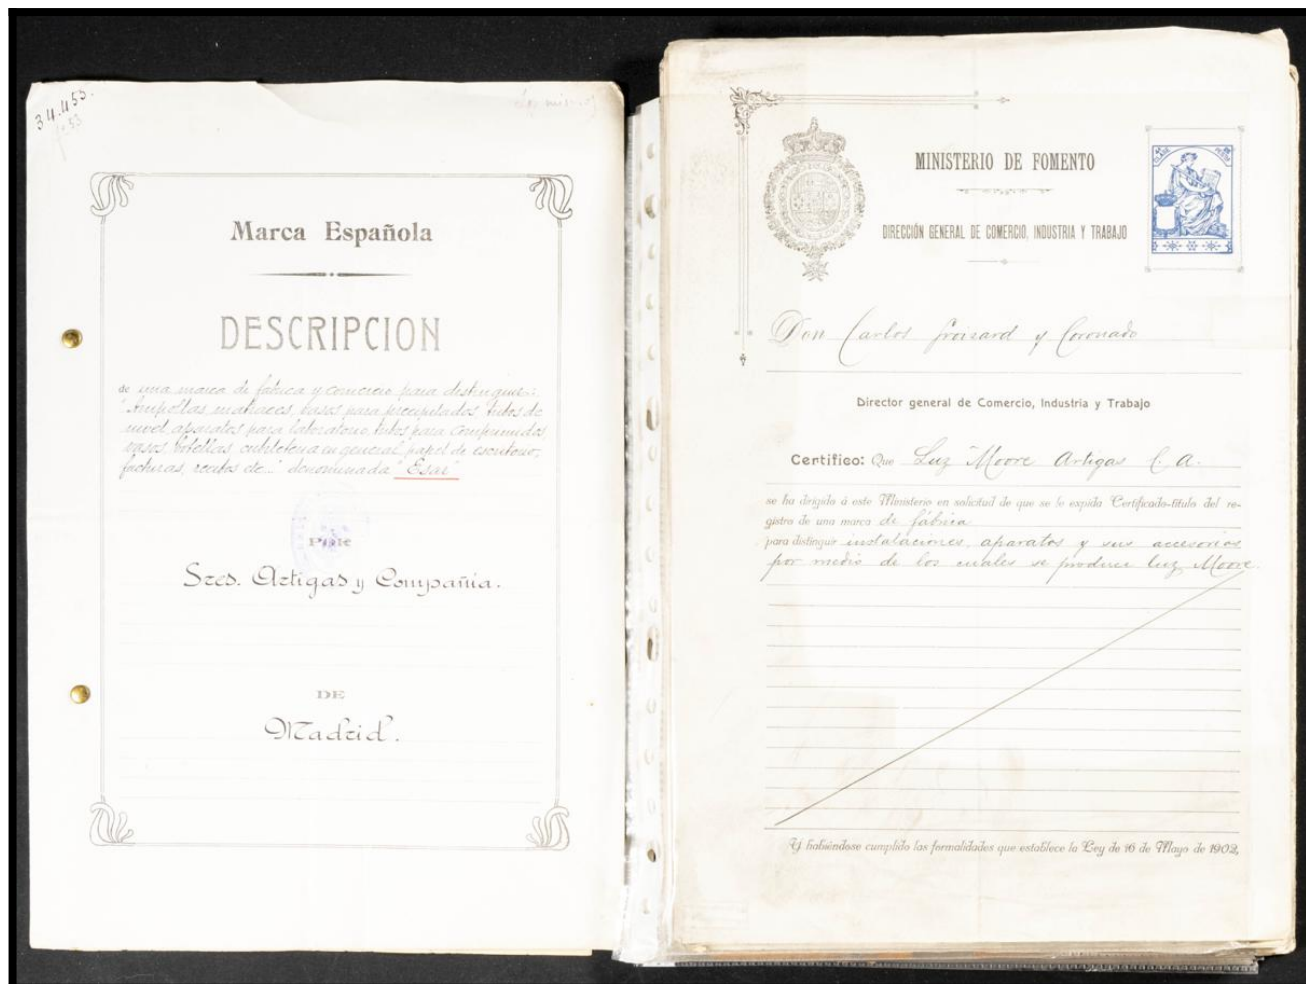 34.455.
Los mismos
Marca Española
DESCRIPCION
de una marca de fabrica y comercio para distinguir:
"Ampollas, matraces, vasos para precipitados, tubos de
nivel, aparatos para laboratorio, tubos para comprimidos,
vasos, botellas, cubileteria en general, papel de escritorio,
facturas, recibos etc." denominada "Esar"
POR
Sres. Artigas y Compañia.
DE
Madrid.
MINISTERIO DE FOMENTO
DIRECCIÓN GENERAL DE COMERCIO, INDUSTRIA Y TRABAJO
Don Carlos Groizard y Coronado
Director general de Comercio, Industria y Trabajo
Certifico: Que Luz Moore Artigas C. A.
se ha dirigido á este Ministerio en solicitud de que se le expida Certificado-título del re-
gistro de una marca de fábrica
para distinguir instalaciones, aparatos y sus accesorios
por medio de los cuales se produce luz Moore.
Y habiéndose cumplido las formalidades que establece la Ley de 16 de Mayo de 1902,